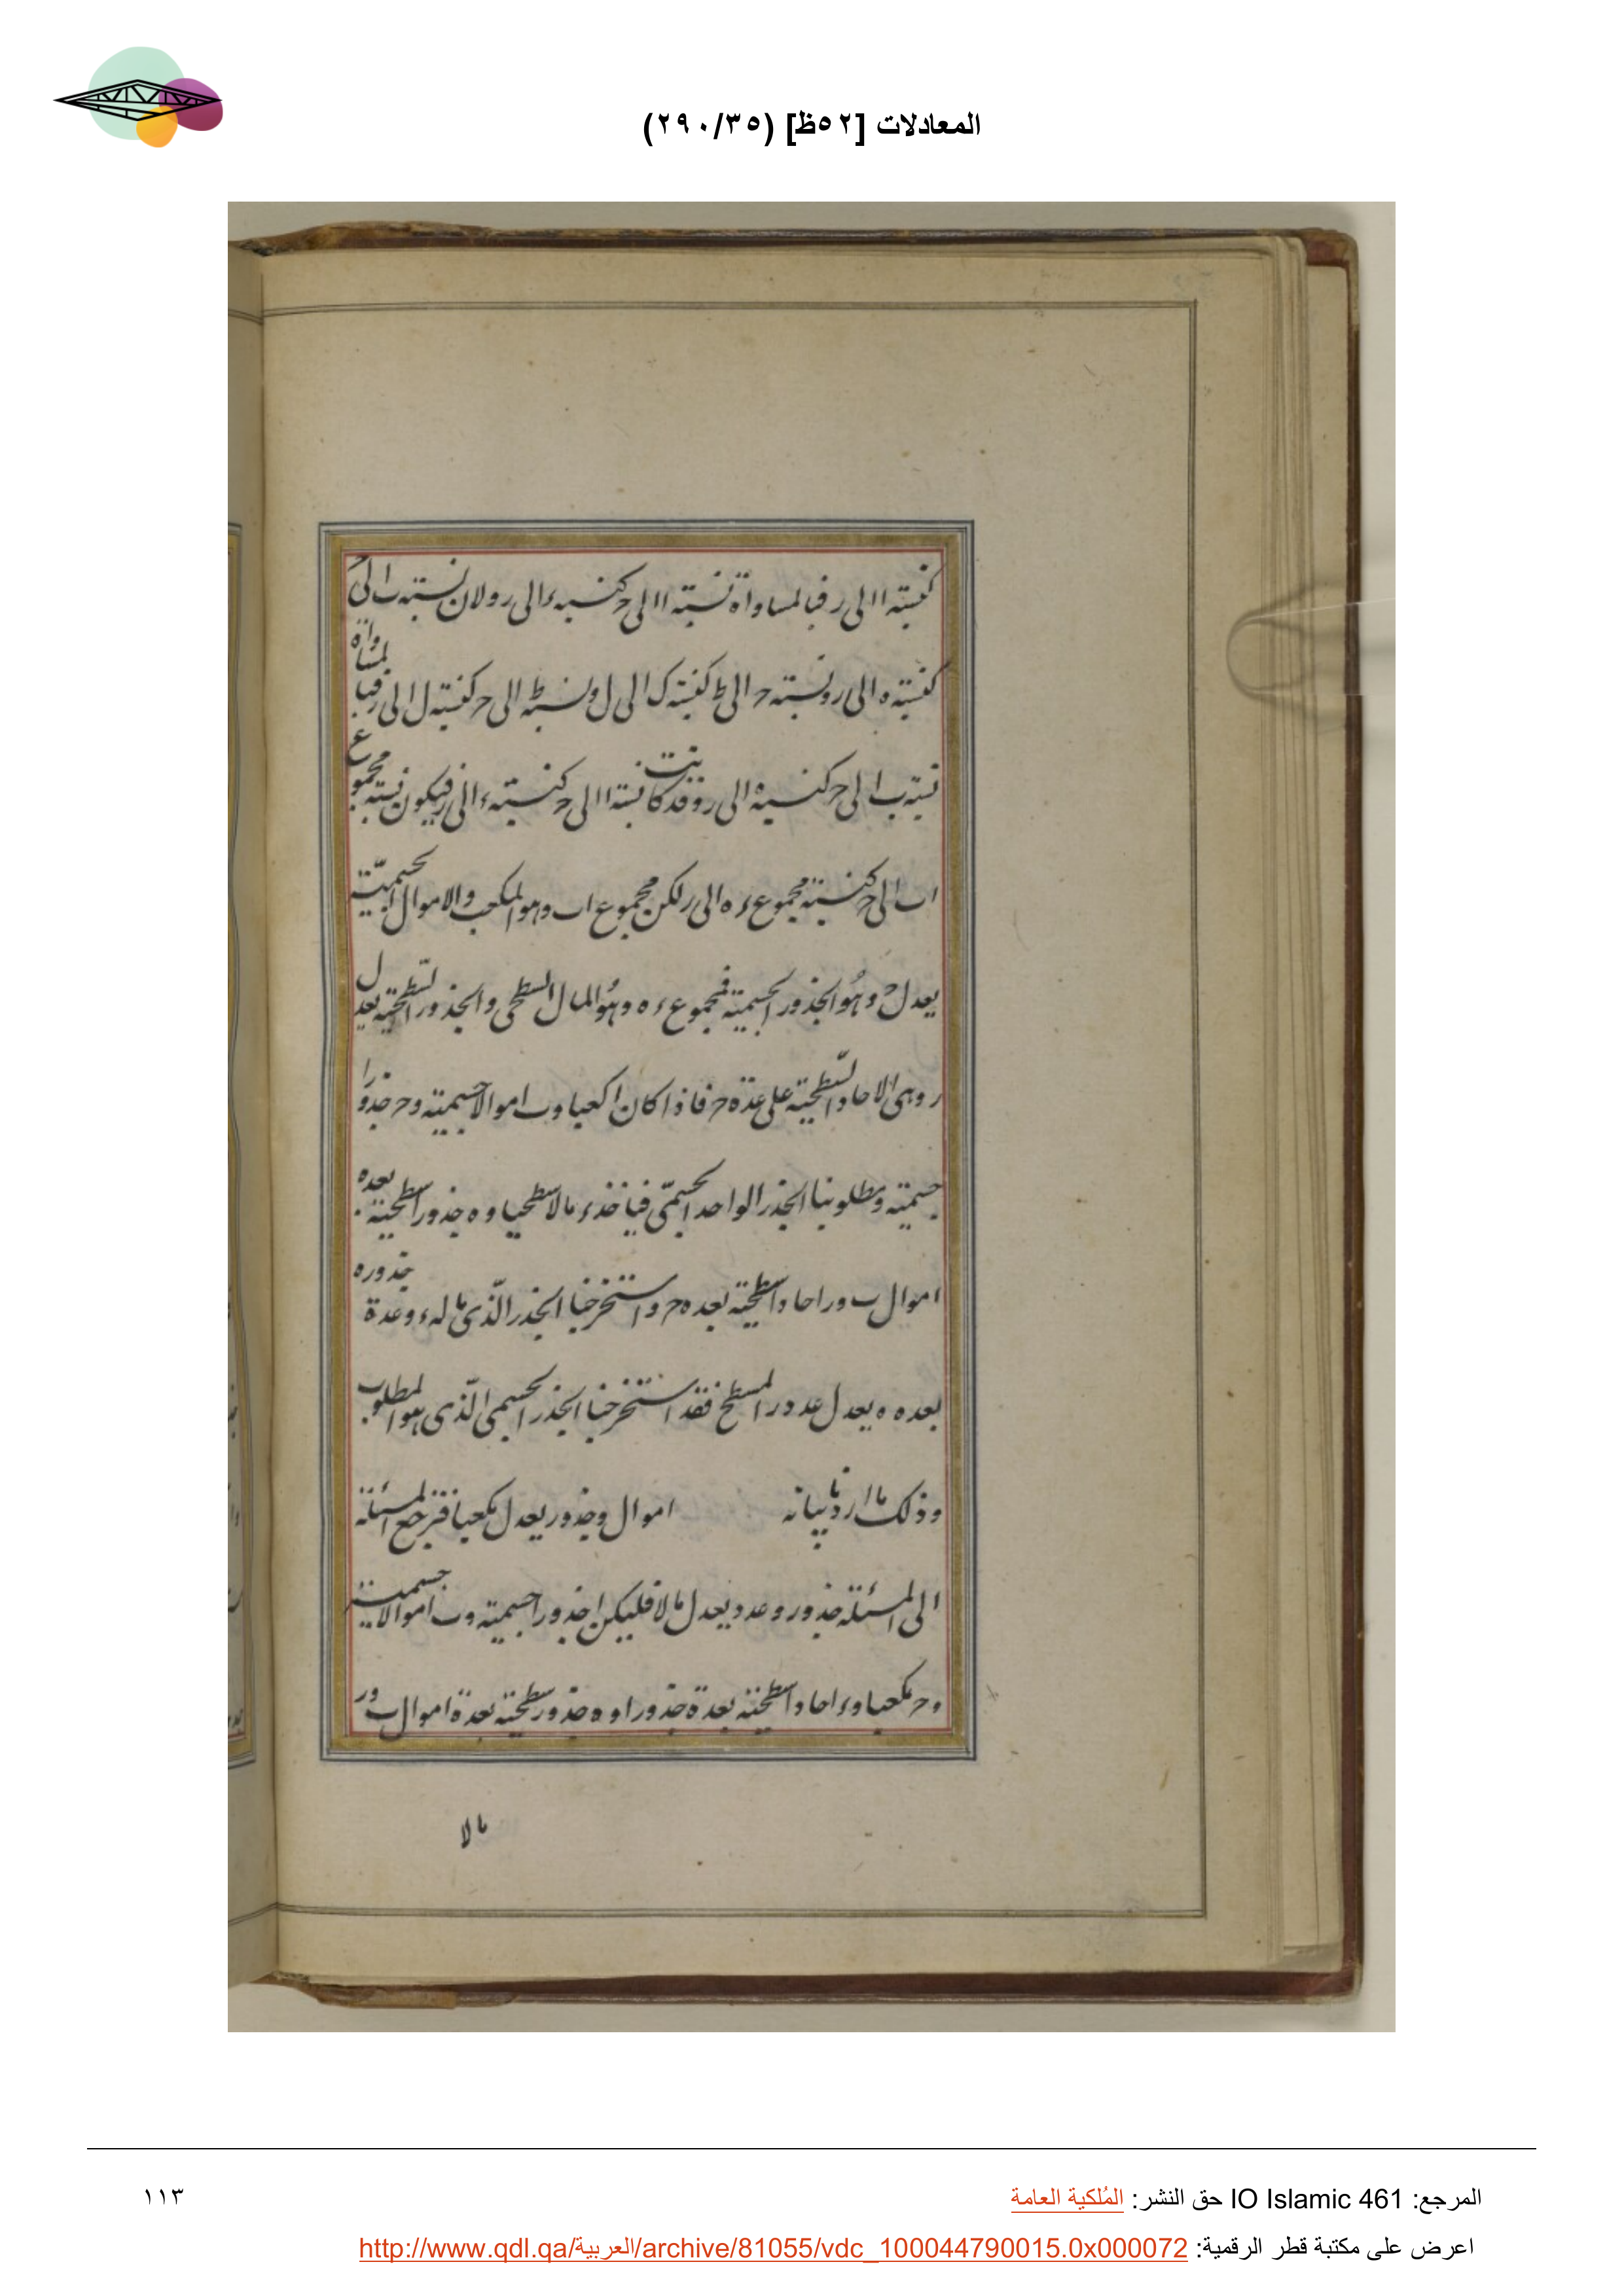 المعادلات [٥٢ظ] (٢٩٠/٣٥)
كنسبة ا الى ر فبالمساواة نسبة ا الى ح كنسبة ء الى ر ولان نسبة ب الى
كنسبة ه الى ر ونسبة ح الى ط كنسبة ك الى ل ونسبة ط الى ح كنسبة ل الى ر فبالمساواة
نسبة ب الى ح كنسبة ه الى ر وقد كانت نسبة ا الى ح كنسبة ء الى ر فيكون نسبة مجموع
اب الى ح كنسبة مجموع ء ه الى ر لكن مجموع اب وهو المكعب والاموال الجسمية
يعدل ح وهو الجذور الجسمية فمجموع ء ه وهو المال السطحى والجذور السطحية يعدل
ر وهى الاحاد السطحية على عدة ح فاذا كان ا كعبا وب اموالا جسمية وح جذورا
جسمية ومطلوبنا الجذر الواحد الجسمى فياخذ ء مالا سطحيا وه جذورا سطحية بعده
اموال ب ور احادا سطحية بعده ح واستخرجنا الجذر الذى ماله ء وعدة جذوره
بعده ه يعدل عدد ر المسطح فقد استخرجنا الجذر الجسمى الذى هو المطلوب
وذلك ما اردنا بيانه اموال وجذور يعدل مكعبا فترجع المسئلة
الى المسئلة جذور وعدد يعدل مالا فليكن ا جذورا جسمية وب اموالا جسمية
وح مكعبا وء احادا سطحية بعدة جذور ا وه جذور سطحية بعدة اموال ب ور
مالا
المرجع: IO Islamic 461 حق النشر: المُلكية العامة
١١٣
اعرض على مكتبة قطر الرقمية: http://www.qdl.qa/العربية/archive/81055/vdc_100044790015.0x000072